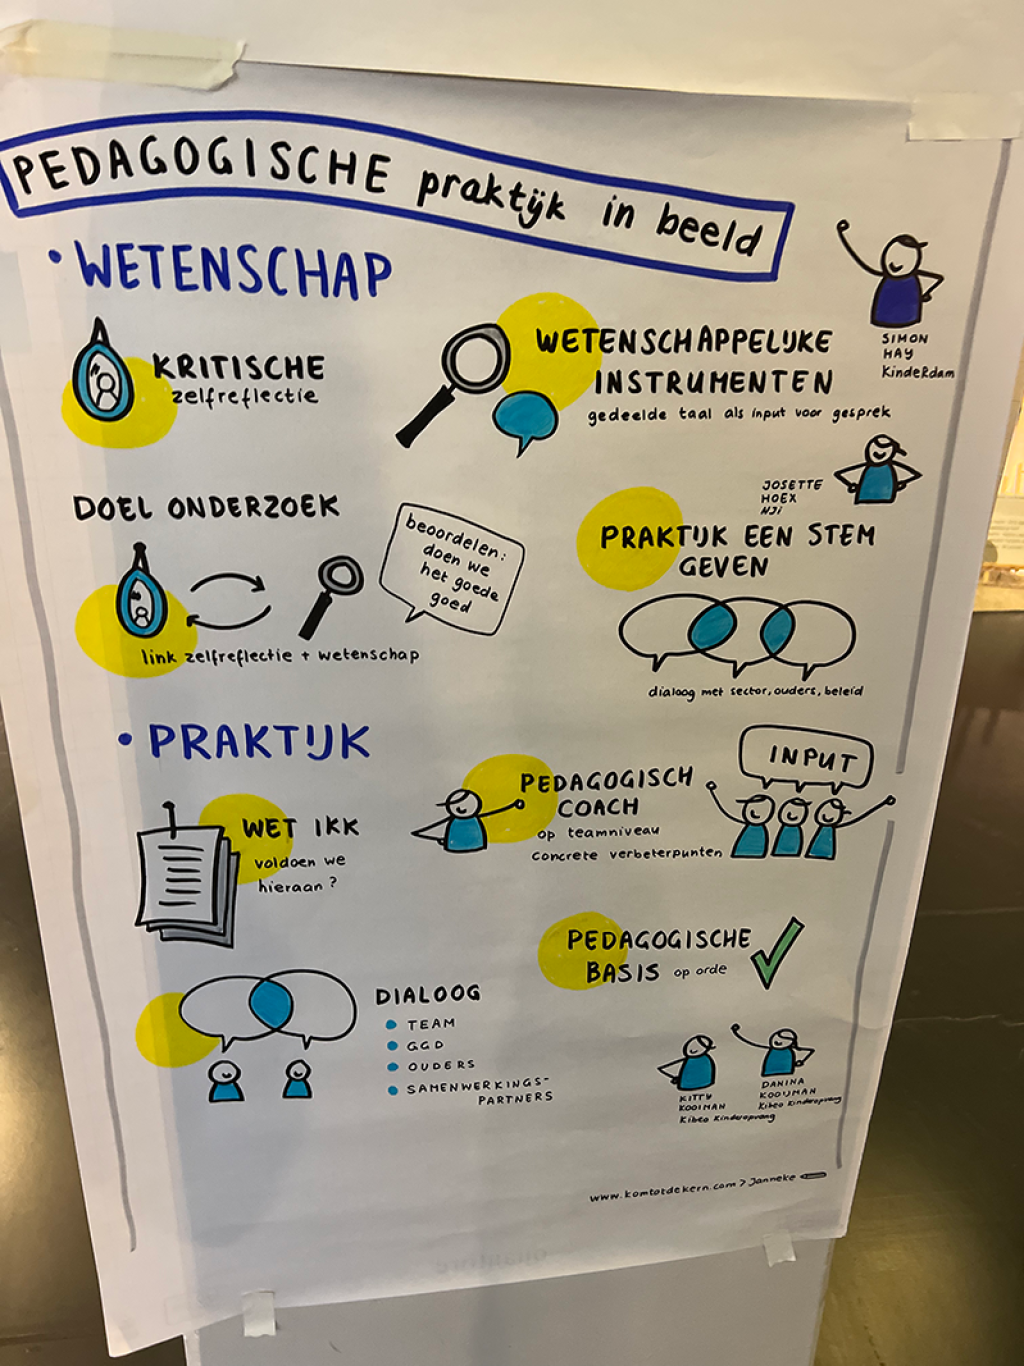 PEDAGOGISCHE praktijk in beeld
• WETENSCHAP
SIMON
HAY
KindeRdam
KRITISCHE
zelfreflectie
WETENSCHAPPELIJKE
INSTRUMENTEN
gedeelde taal als input voor gesprek
DOEL ONDERZOEK
beoordelen:
doen we
het goede
goed
link zelfreflectie + wetenschap
JOSETTE
HOEX
NJi
PRAKTIJK EEN STEM
GEVEN
dialoog met sector, ouders, beleid
• PRAKTIJK
WET IKK
voldoen we
hieraan?
PEDAGOGISCH
COACH
op teamniveau
concrete verbeterpunten
INPUT
PEDAGOGISCHE
BASIS op orde
DIALOOG
• TEAM
• GGD
• OUDERS
• SAMENWERKINGS-
PARTNERS
KITTY
KOOIMAN
Kibeo Kinderopvang
DANINA
KOOIJMAN
Kibeo Kinderopvang
www.komtotdekern.com > Janneke